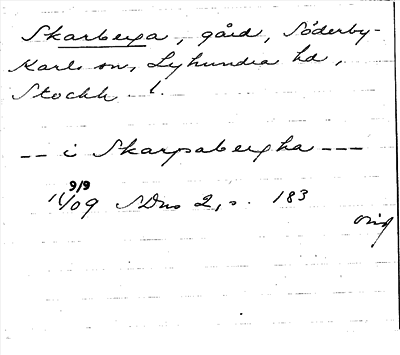 Skarberga, gård, Söderby-
Karls sn, Lyhundra hd,
Stockh. l.
-- i Skarpabergha ---
9/9
1409 SDns 2, s. 183
orig